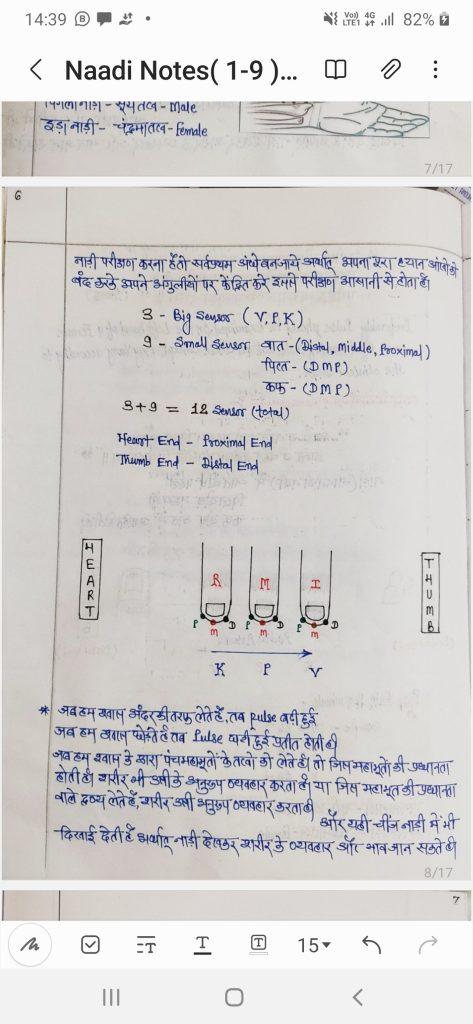 14:39
Vo)) 4G
LTE1
82%
Naadi Notes( 1-9 )...
पिंगला नाड़ी - सूर्यतत्व - Male
इड़ा नाड़ी - चंद्रमातत्व - Female
7/17
6
नाडी परीक्षण करना है तो सर्वप्रथम अंधे बन जाये अर्थात् अपना पूरा ध्यान आंखों को
बंद करके अपने अंगुलीयों पर केंद्रित करे इससे परीक्षण आसानी से होता है।
3 - Big Sensor ( V, P, K )
9 - Small Sensor वात - (Distal, Middle, Proximal)
पित्त - (D M P)
कफ - (D M P)
3+9 = 12 Sensor (total)
Heart End - Proximal End
Thumb End - Distal End
HEART
R M I
THUMB
P M D P M D P M D
K P V
* जब हम श्वास अंदर की तरफ लेते हैं, तब Pulse बढी हुई
जब हम श्वास छोड़ते हैं तब Pulse घटी हुई प्रतीत होती है।
जब हम श्वास के द्वारा पंचमहाभूतों के तत्वों को लेते है। तो जिस महाभूतों की प्रधानता
होती है। शरीर भी उसी के अनुरूप व्यवहार करता है। या जिस महाभूत की प्रधानता
वाले द्रव्य लेते हैं, शरीर उसी अनुरूप व्यवहार करता है।
और यही चीज नाड़ी में भी
दिखाई देती हैं अर्थात् नाड़ी देखकर शरीर के व्यवहार और भाव जान सकते है।
8/17
7
15